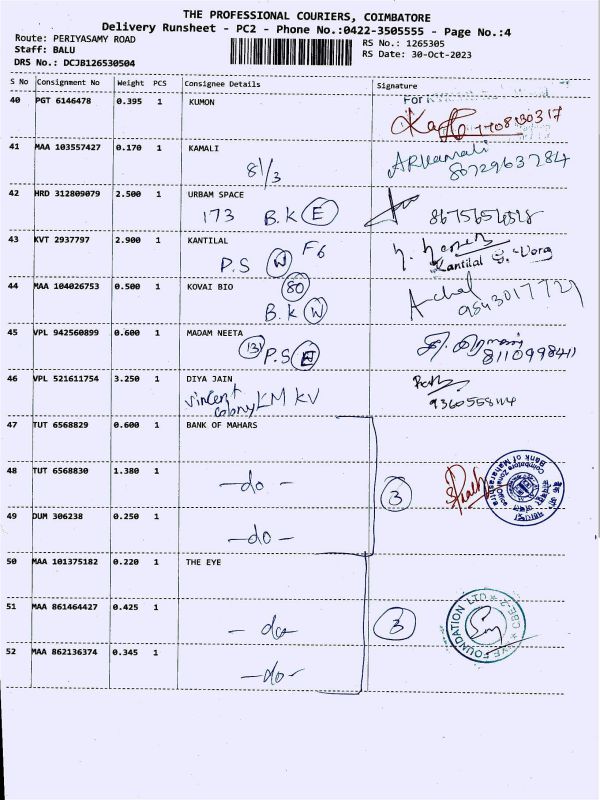 THE PROFESSIONAL COURIERS, COIMBATORE
Delivery Runsheet - PC2 - Phone No.:0422-3505555 - Page No.:4
Route: PERIYASAMY ROAD
RS No.: 1265305
Staff: BALU
RS Date: 30-Oct-2023
DRS No.: DCJB126530504
S No Consignment No Weight PCS Consignee Details Signature
40 PGT 6146478 0.395 1 KUMON For
7708130317
41 MAA 103557427 0.170 1 KAMALI
81/3 ARKamali
8072963784
42 HRD 312809079 2.500 1 URBAM SPACE
173 B.K E
43 KVT 2937797 2.900 1 KANTILAL
P.S W F6
Kantilal
44 MAA 104026753 0.500 1 KOVAI BIO 80
B.K W
Achal
45 VPL 942560899 0.600 1 MADAM NEETA
131 P.S
8110998411
46 VPL 521611754 3.250 1 DIYA JAIN
vincent colony KM KV
47 TUT 6568829 0.600 1 BANK OF MAHARS
48 TUT 6568830 1.380 1
-do-
3
Bank of Maharashtra
49 DUM 306238 0.250 1
-do-
50 MAA 101375182 0.220 1 THE EYE
51 MAA 861464427 0.425 1
-do-
3
EYE FOUNDATION LTD * CBE-2 *
52 MAA 862136374 0.345 1
-do-